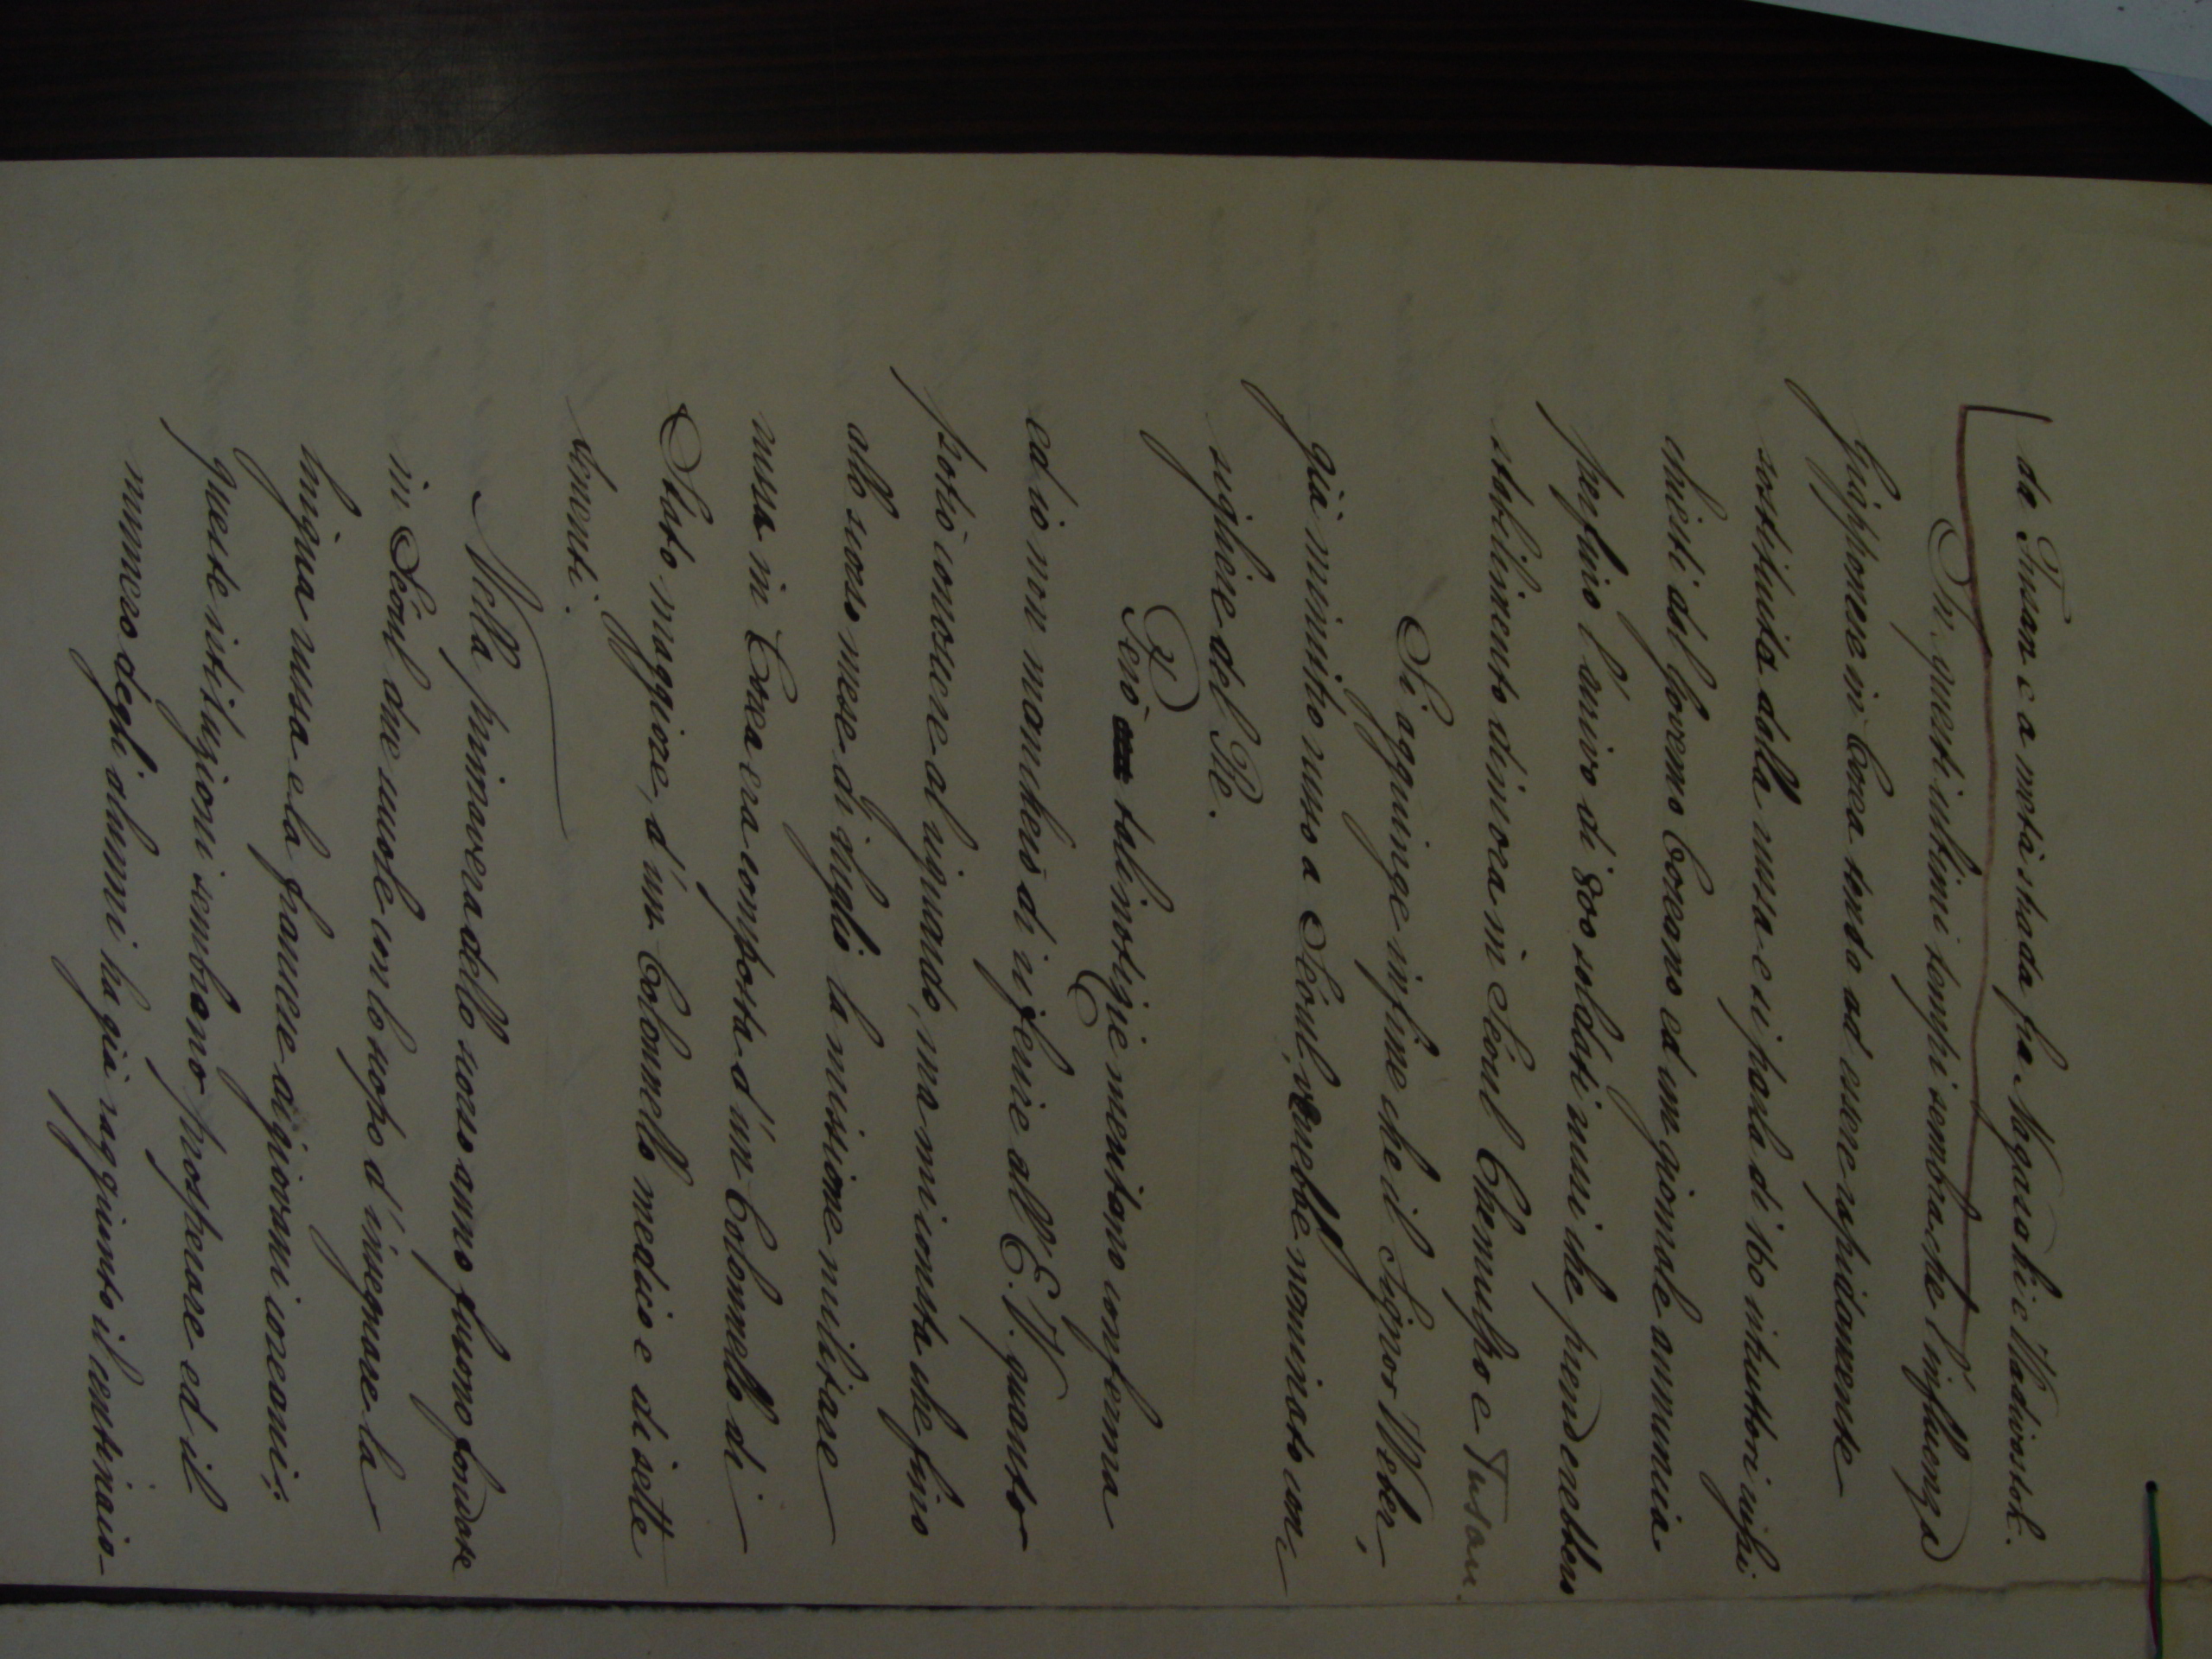 da Fusan e a metà strada fra Nagasaki e Vladivostok.
In questi ultimi tempi sembra che l'influenza
Giapponese in Corea tenda ad essere rapidamente
sostituita dalla russa e si parla di 160 istruttori
chiesti dal Governo Coreano ed un giornale annuncia
perfino l'arrivo di 800 soldati russi che prenderebbero
stabilimento dimora in Séoul Chemulpo e Fusan.
Si aggiunge infine che il Signor Weber,
già ministro russo a Séoul, verrebbe nominato con-
sigliere del Re.
Però tali notizie meritano conferma
ed io non mancherò di riferire all'E.V. quanto
potrò conoscere al riguardo, ma mi consta che fino
allo scorso mese di luglio la missione militare
russa in Corea era composta d'un Colonnello di
Stato maggiore, d'un Colonnello medico e di sette
tenenti.
Nella primavera dello scorso anno furono fondate
in Séoul due scuole con lo scopo d'insegnare la
lingua russa e la francese ai giovani coreani;
queste istituzioni sembrano prosperare ed il
numero degli alunni ha già raggiunto il centinaio